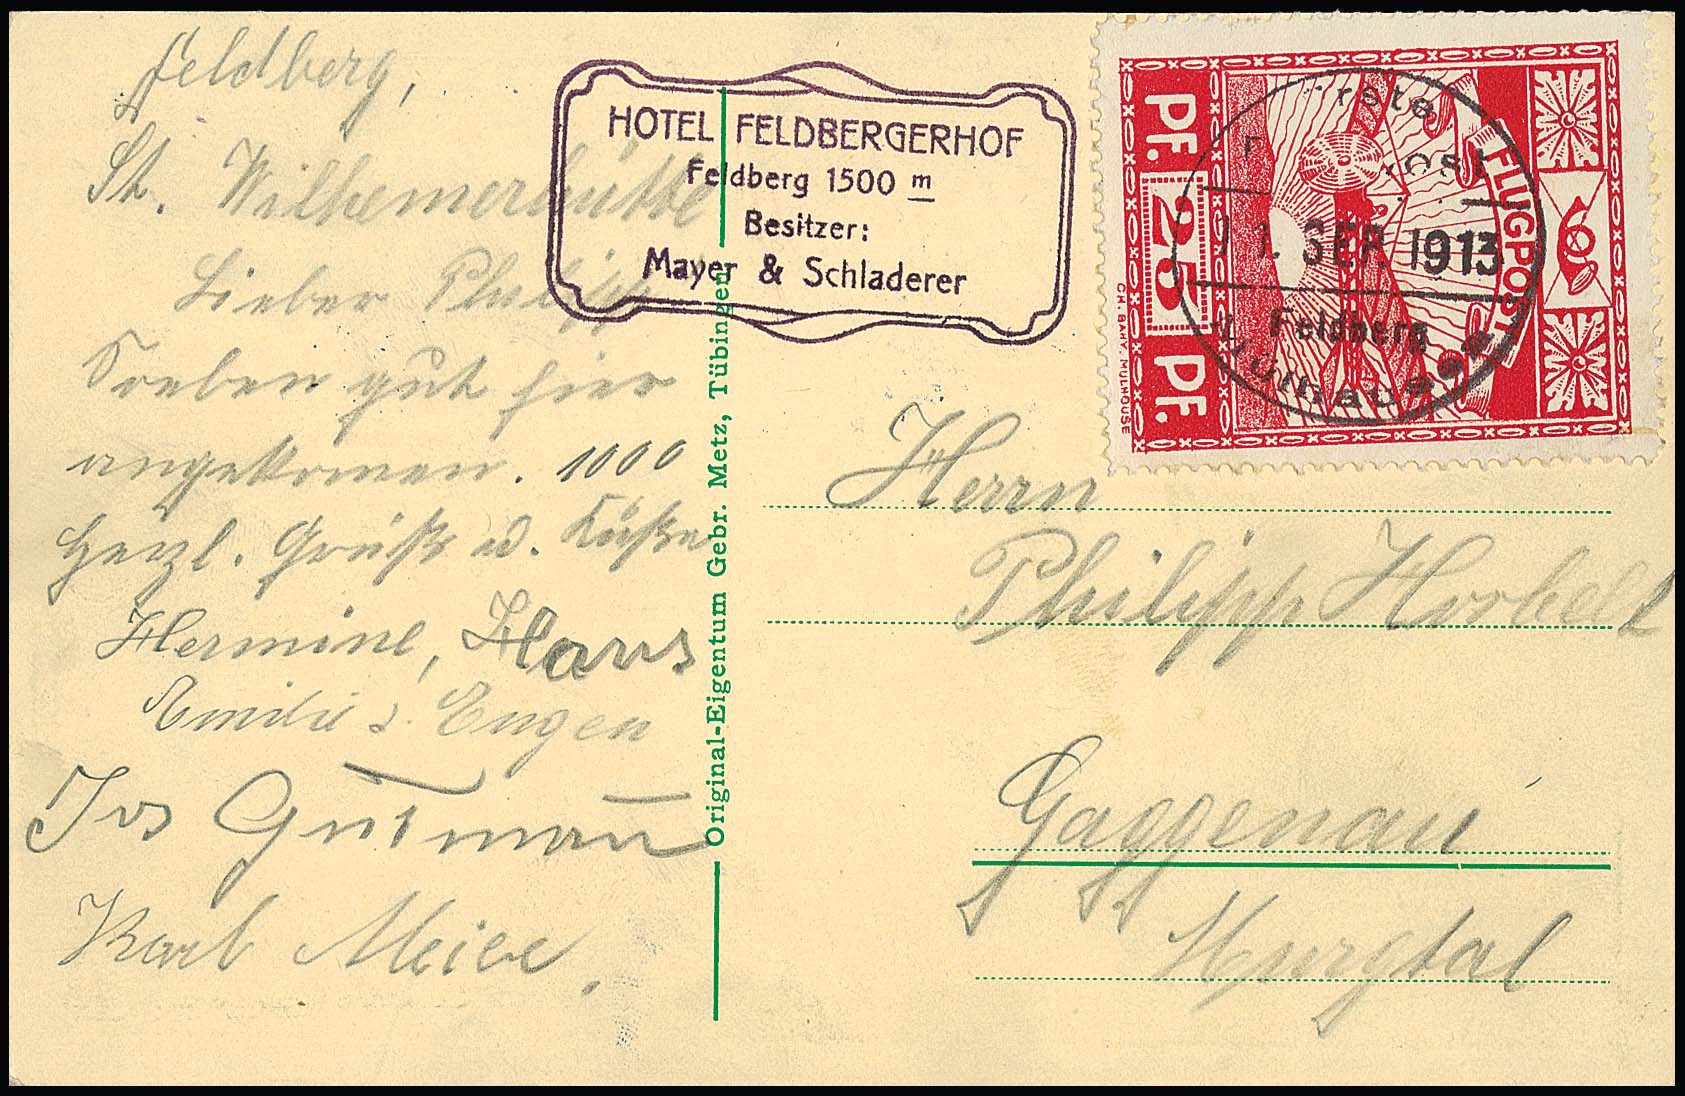 Feldberg,
St. Wilhemerhütte
Lieber Philipp
Soeben gut hier
angekomen. 1000
Herzl. Grüße u. Küße
Hermine, Hans
Emilie & Eugen
Jos Gutmann
Karl Meier.
HOTEL FELDBERGERHOF
Feldberg 1500 m
Besitzer:
Mayer & Schladerer
Original-Eigentum Gebr. Metz, Tübingen
PF. 25 PF.
FLUGPOST
CH. BAHY, MULHOUSE
SEP. 1913
Feldberg
Herrn
Philipp
Gaggenau
Murgtal